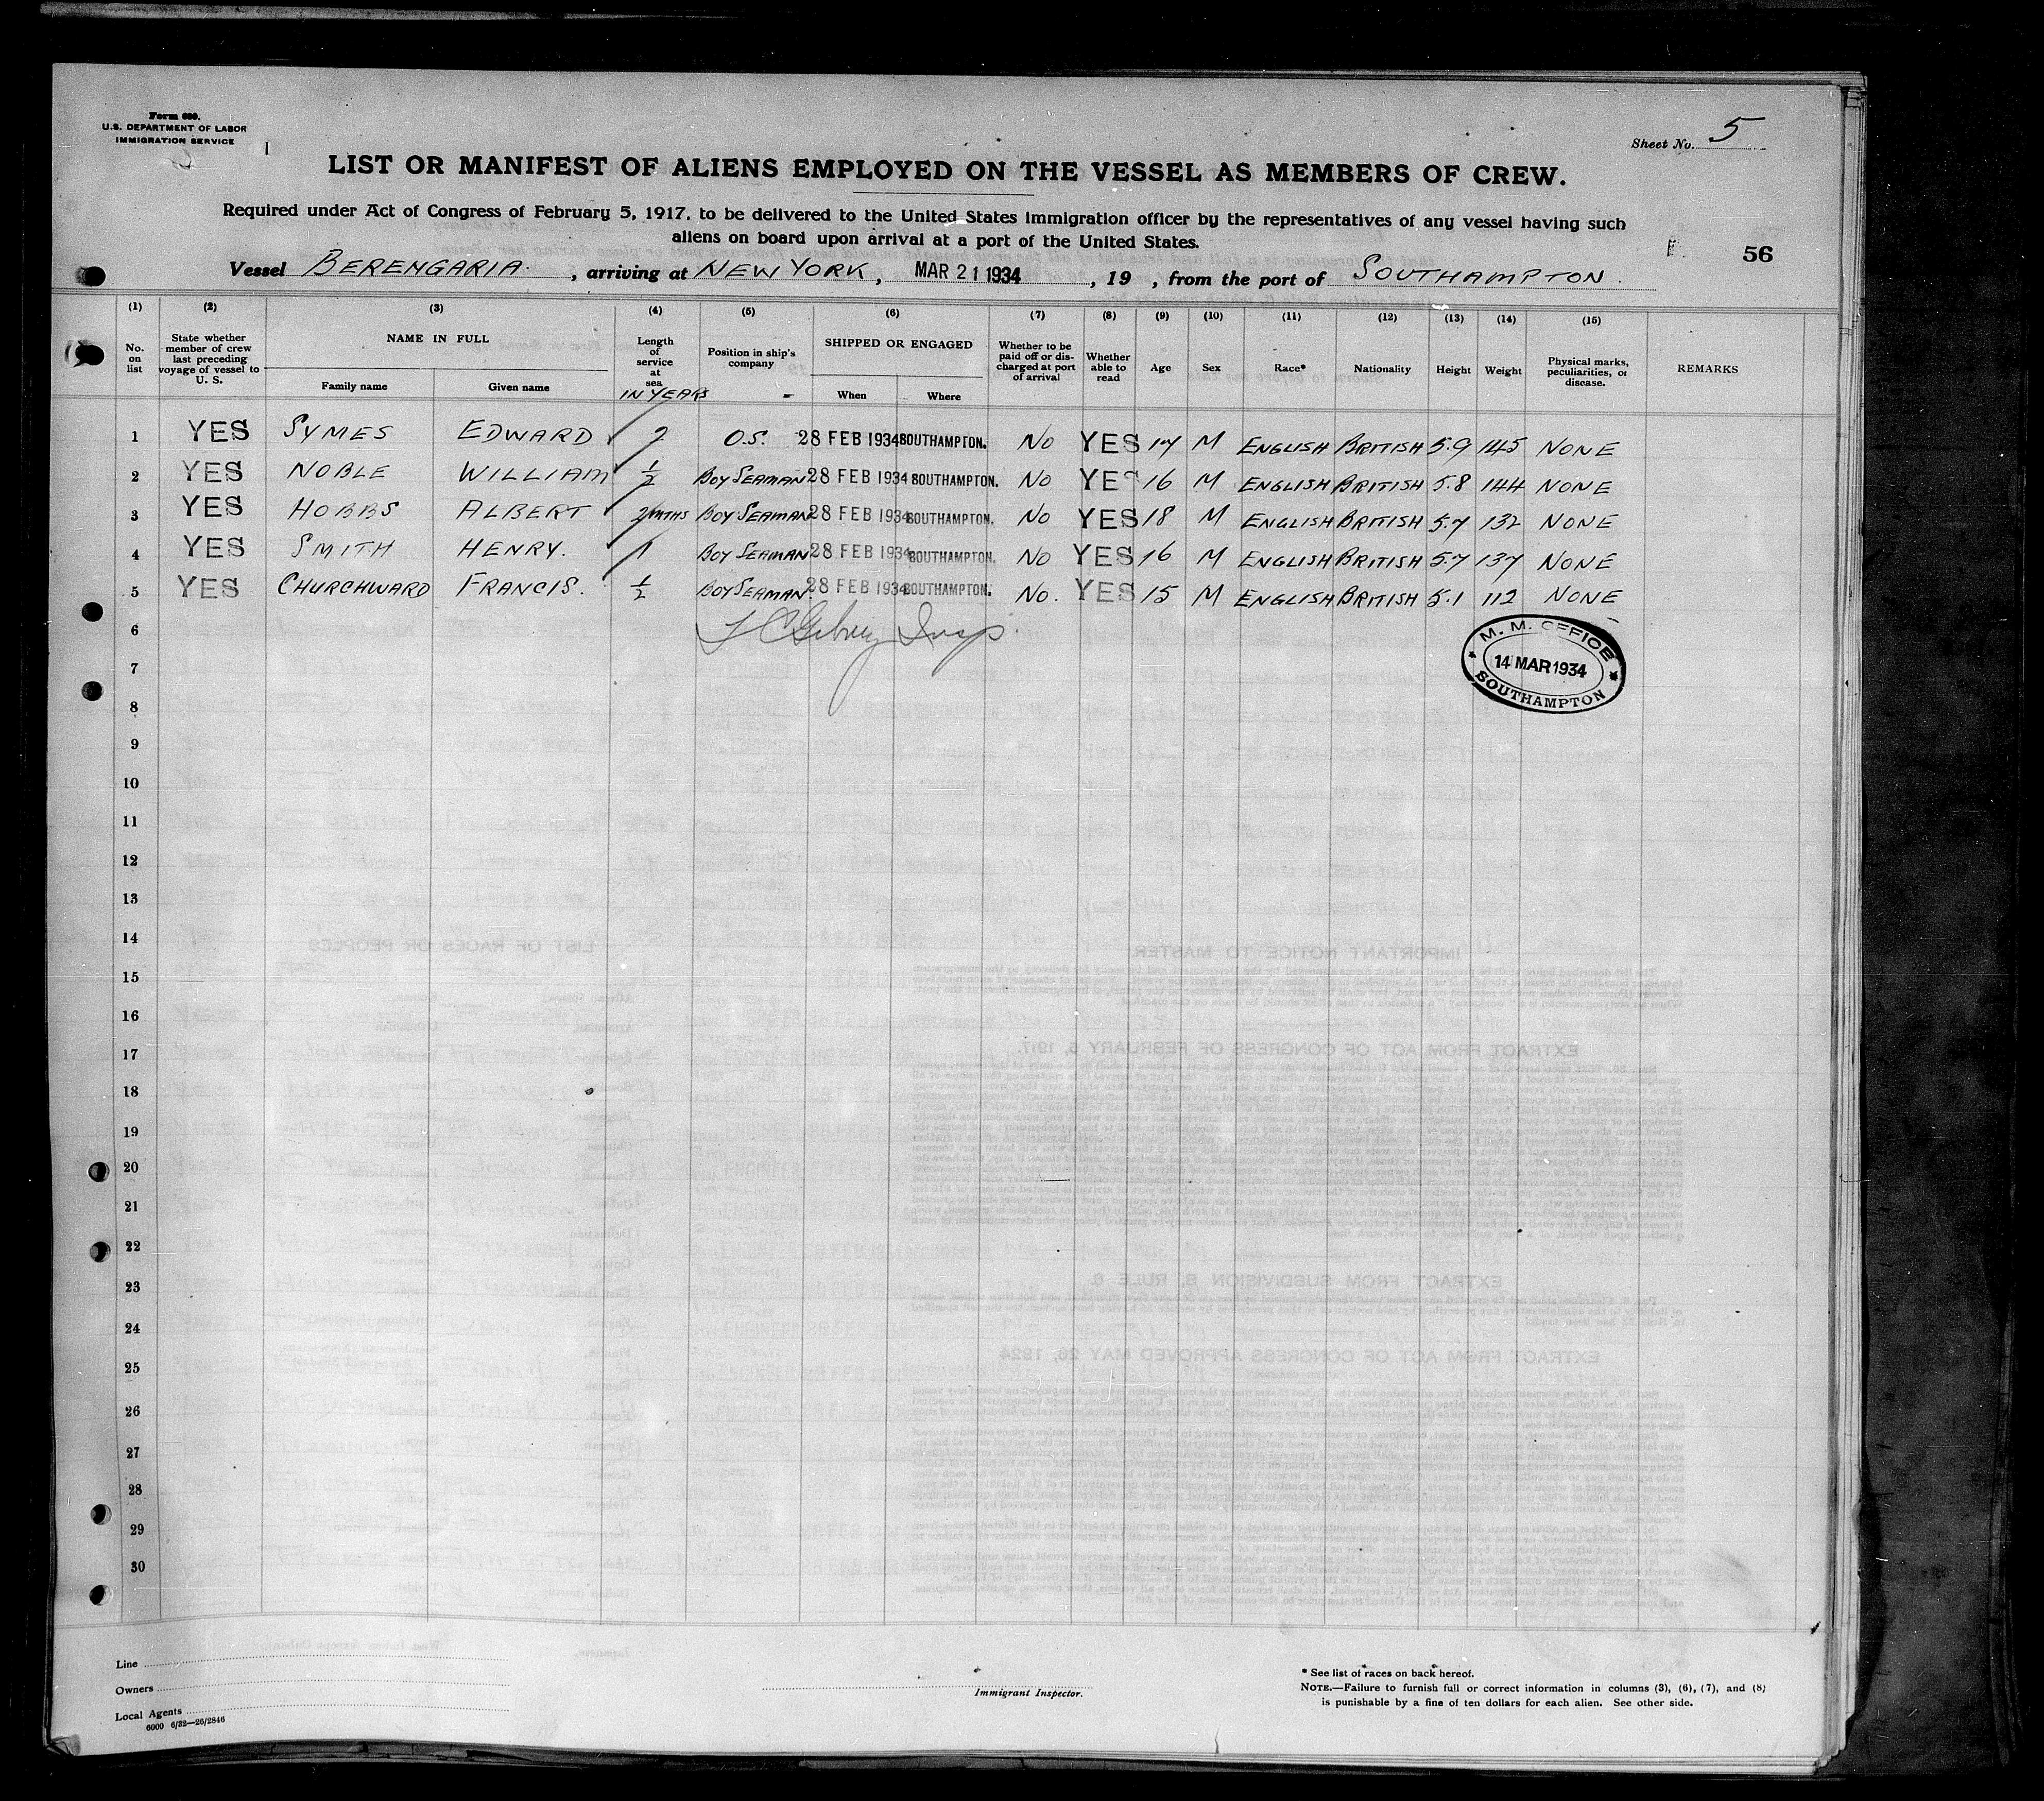 Form 680.
U.S. DEPARTMENT OF LABOR
IMMIGRATION SERVICE
Sheet No. 5
LIST OR MANIFEST OF ALIENS EMPLOYED ON THE VESSEL AS MEMBERS OF CREW.
Required under Act of Congress of February 5, 1917, to be delivered to the United States immigration officer by the representatives of any vessel having such
aliens on board upon arrival at a port of the United States.
56
Vessel BERENGARIA. , arriving at NEW YORK, MAR 21 1934 , 19 , from the port of SOUTHAMPTON.
(1) (2) (3) (4) (5) (6) (7) (8) (9) (10) (11) (12) (13) (14) (15)
No. on list State whether member of crew last preceding voyage of vessel to U. S. NAME IN FULL Family name Given name Length of service at sea IN YEARS Position in ship's company SHIPPED OR ENGAGED When Where Whether to be paid off or discharged at port of arrival Whether able to read Age Sex Race* Nationality Height Weight Physical marks, peculiarities, or disease. REMARKS
1 YES SYMES EDWARD 2 O.S. 28 FEB 1934 SOUTHAMPTON. NO YES 17 M ENGLISH BRITISH 5.9 145 NONE
2 YES NOBLE WILLIAM 1/2 BOY SEAMAN 28 FEB 1934 SOUTHAMPTON. NO YES 16 M ENGLISH BRITISH 5.8 144 NONE
3 YES HOBBS ALBERT 2 MTHS BOY SEAMAN 28 FEB 1934 SOUTHAMPTON. NO YES 18 M ENGLISH BRITISH 5.7 132 NONE
4 YES SMITH HENRY. 1 BOY SEAMAN 28 FEB 1934 SOUTHAMPTON. NO YES 16 M ENGLISH BRITISH 5.7 137 NONE
5 YES CHURCHWARD FRANCIS. 1/2 BOY SEAMAN. 28 FEB 1934 SOUTHAMPTON. NO. YES 15 M ENGLISH BRITISH 5.1 112 NONE
6
M. M. OFFICE
14 MAR 1934
SOUTHAMPTON
7
8
9
10
11
12
13
14
15
16
17
18
19
20
21
22
23
24
25
26
27
28
29
30
Line
Owners
Local Agents
6000 6/32—26/2846
Immigrant Inspector.
* See list of races on back hereof.
NOTE.—Failure to furnish full or correct information in columns (3), (6), (7), and (8)
is punishable by a fine of ten dollars for each alien. See other side.